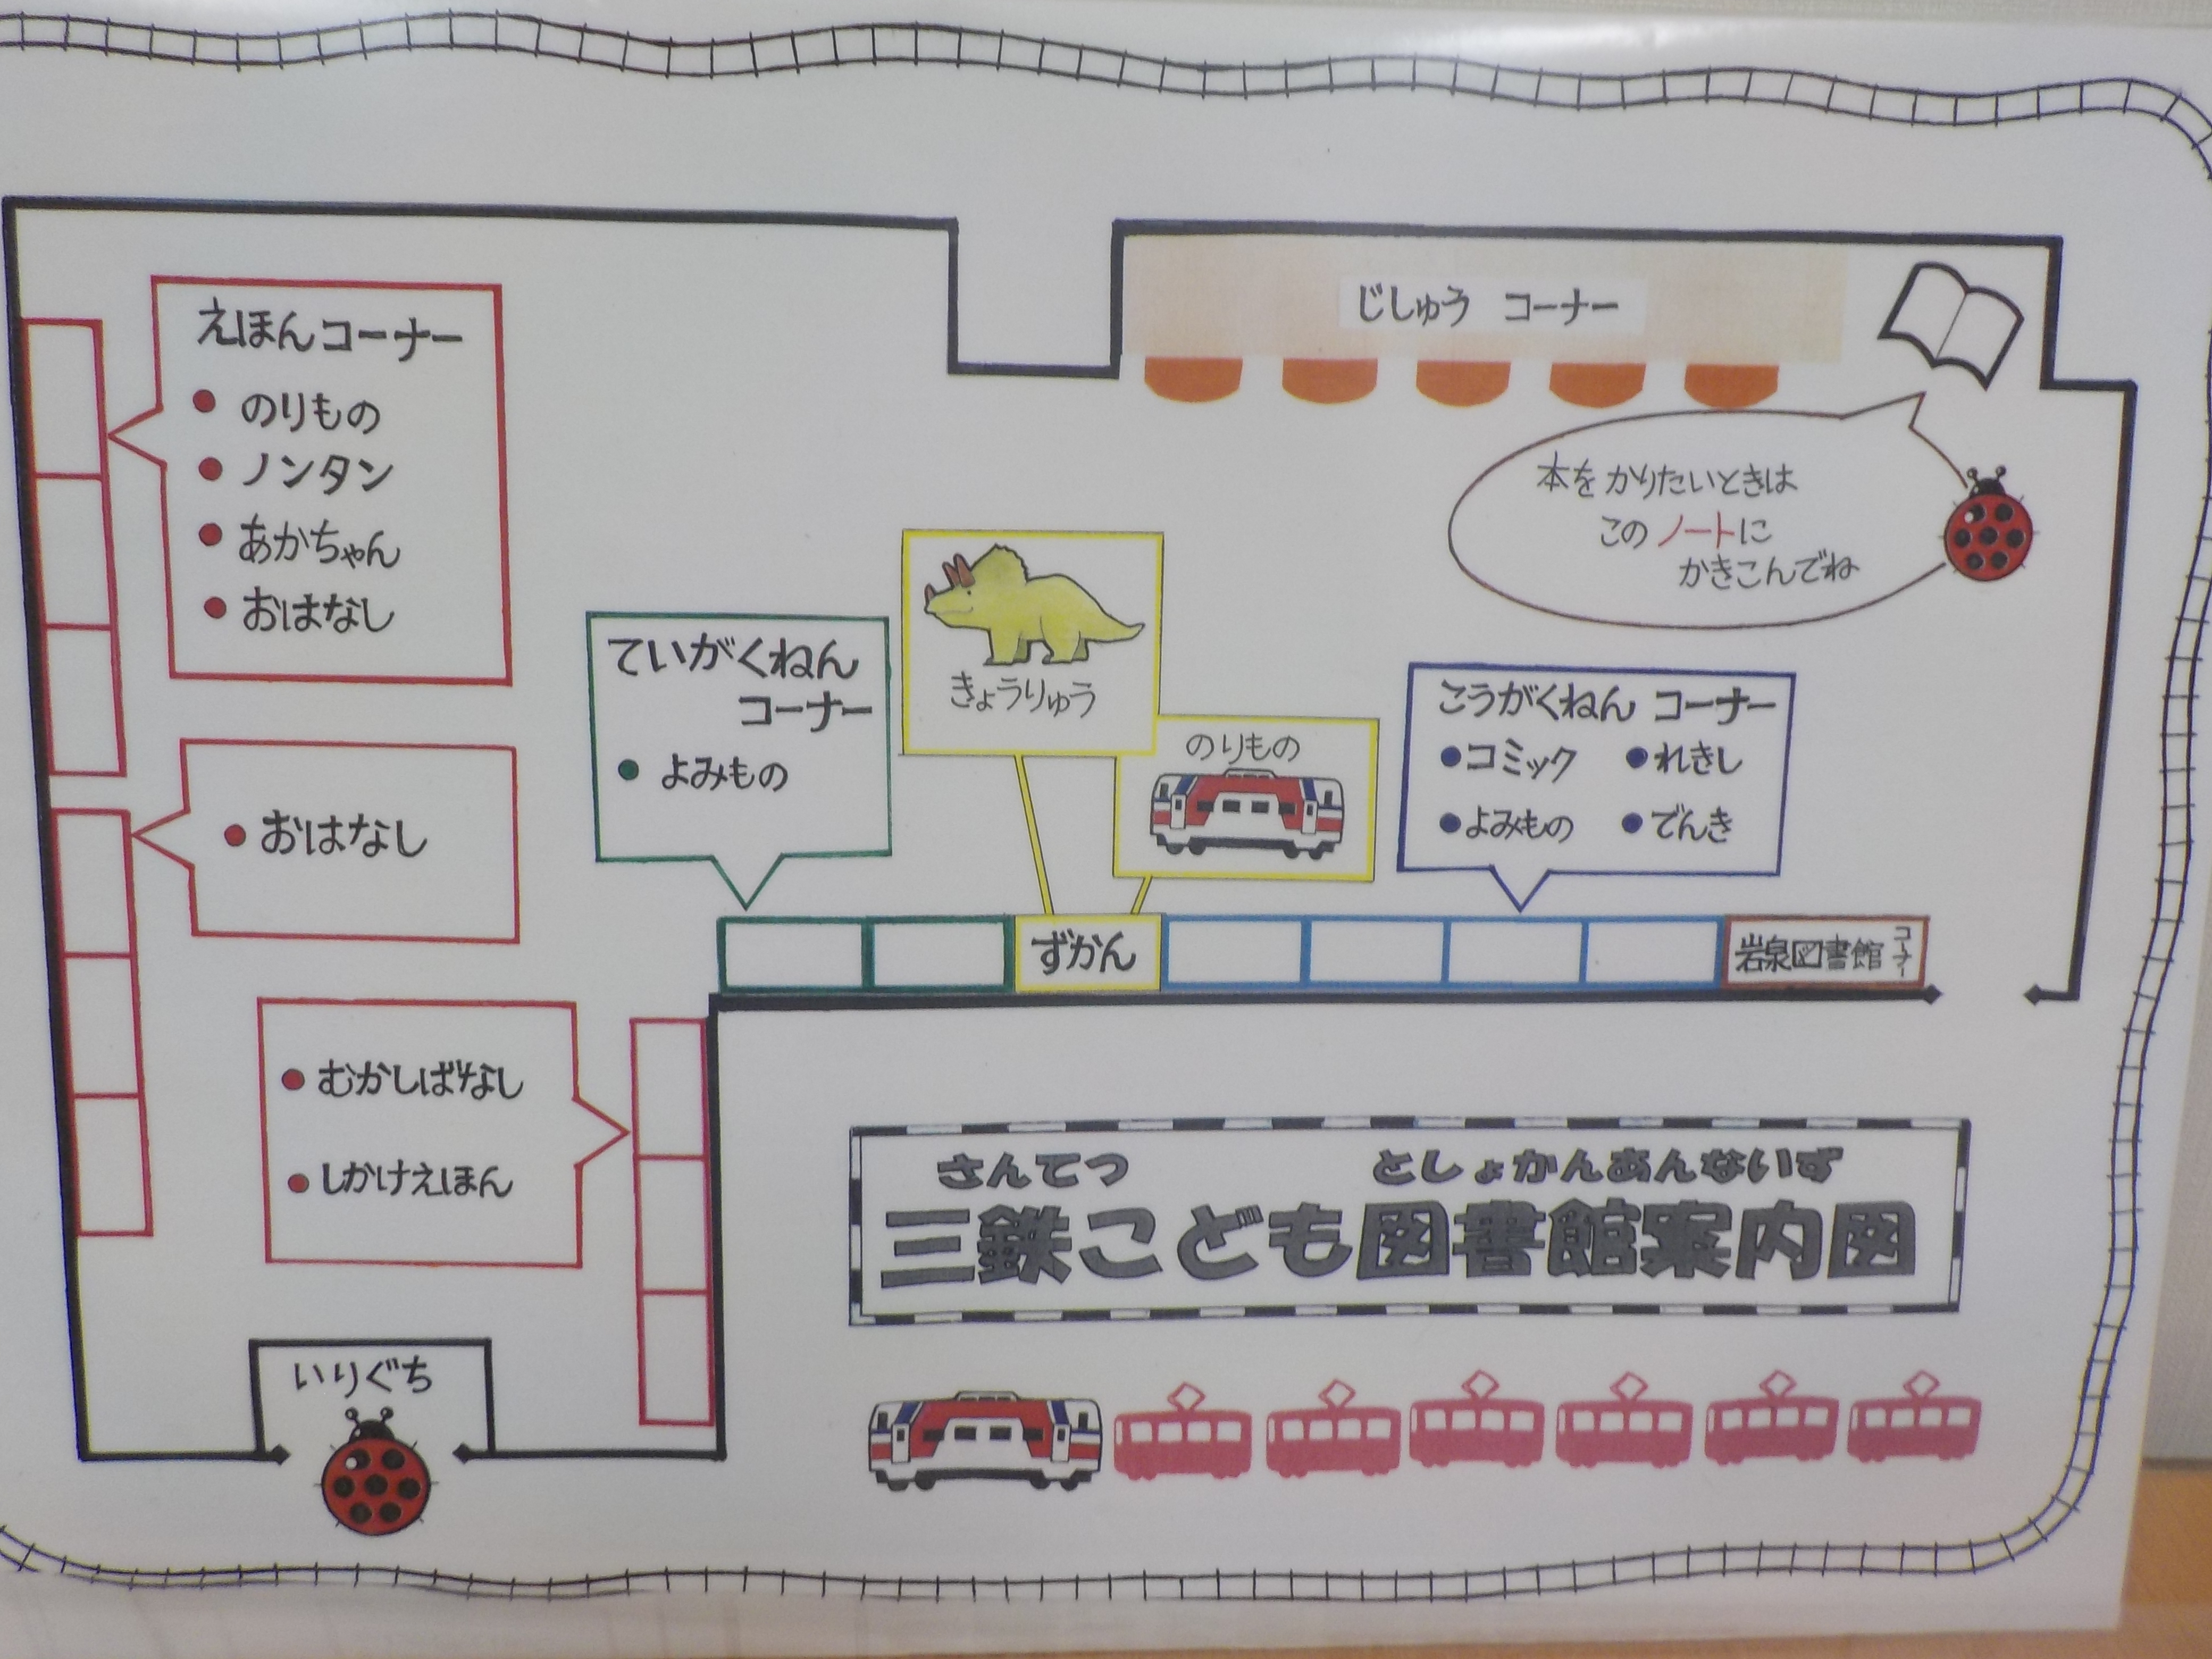 えほんコーナー
● のりもの
● ノンタン
● あかちゃん
● おはなし
● おはなし
● むかしばなし
● しかけえほん
いりぐち
ていがくねん
コーナー
● よみもの
きょうりゅう
のりもの
ずかん
じしゅう コーナー
本を かりたいときは
この ノートに
かきこんでね
こうがくねん コーナー
●コミック ●れきし
●よみもの ●でんき
岩泉図書館 コーナー
さんてつ としょかんあんないず
三鉄こども図書館案内図